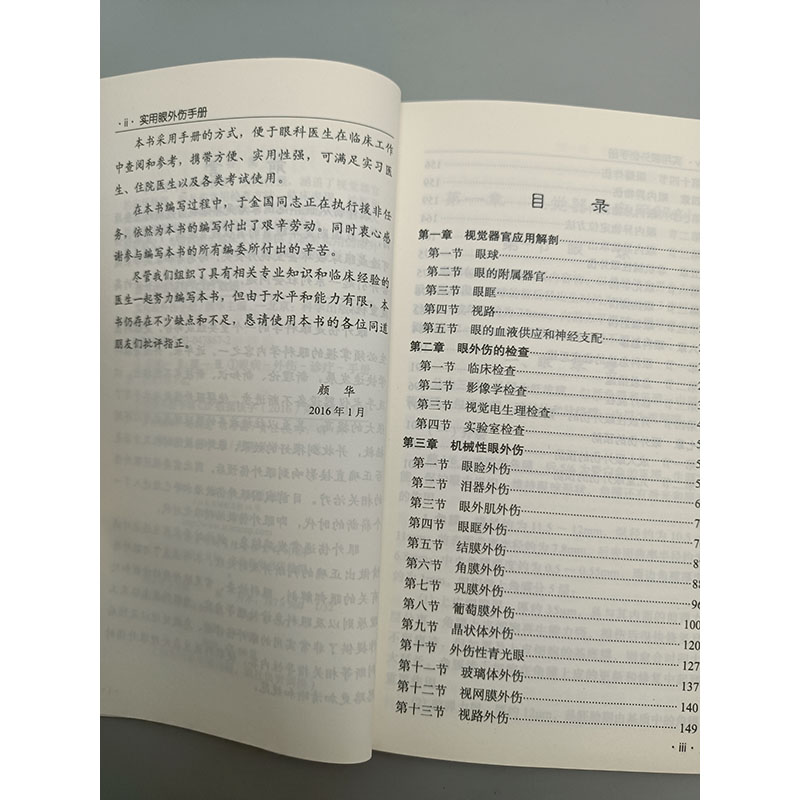 ·ii· 实用眼外伤手册
本书采用手册的方式，便于眼科医生在临床工作
中查阅和参考，携带方便、实用性强，可满足实习医
生、住院医生以及各类考试使用。
在本书编写过程中，于金国同志正在执行援非任
务，依然为本书的编写付出了艰辛劳动。同时衷心感
谢参与编写本书的所有编委所付出的辛苦。
尽管我们组织了具有相关专业知识和临床经验的
医生一起努力编写本书，但由于水平和能力有限，本
书仍存在不少缺点和不足，恳请使用本书的各位同道
朋友们批评指正。
颜 华
2016年1月
目 录
第一章 视觉器官应用解剖
第一节 眼球
第二节 眼的附属器官
第三节 眼眶
第四节 视路
第五节 眼的血液供应和神经支配
第二章 眼外伤的检查
第一节 临床检查
第二节 影像学检查
第三节 视觉电生理检查
第四节 实验室检查
第三章 机械性眼外伤
第一节 眼睑外伤
第二节 泪器外伤
第三节 眼外肌外伤
第四节 眼眶外伤
第五节 结膜外伤
第六节 角膜外伤 88
第七节 巩膜外伤 96
第八节 葡萄膜外伤 100
第九节 晶状体外伤 120
第十节 外伤性青光眼 127
第十一节 玻璃体外伤 137
第十二节 视网膜外伤 140
第十三节 视路外伤 149
·iii·